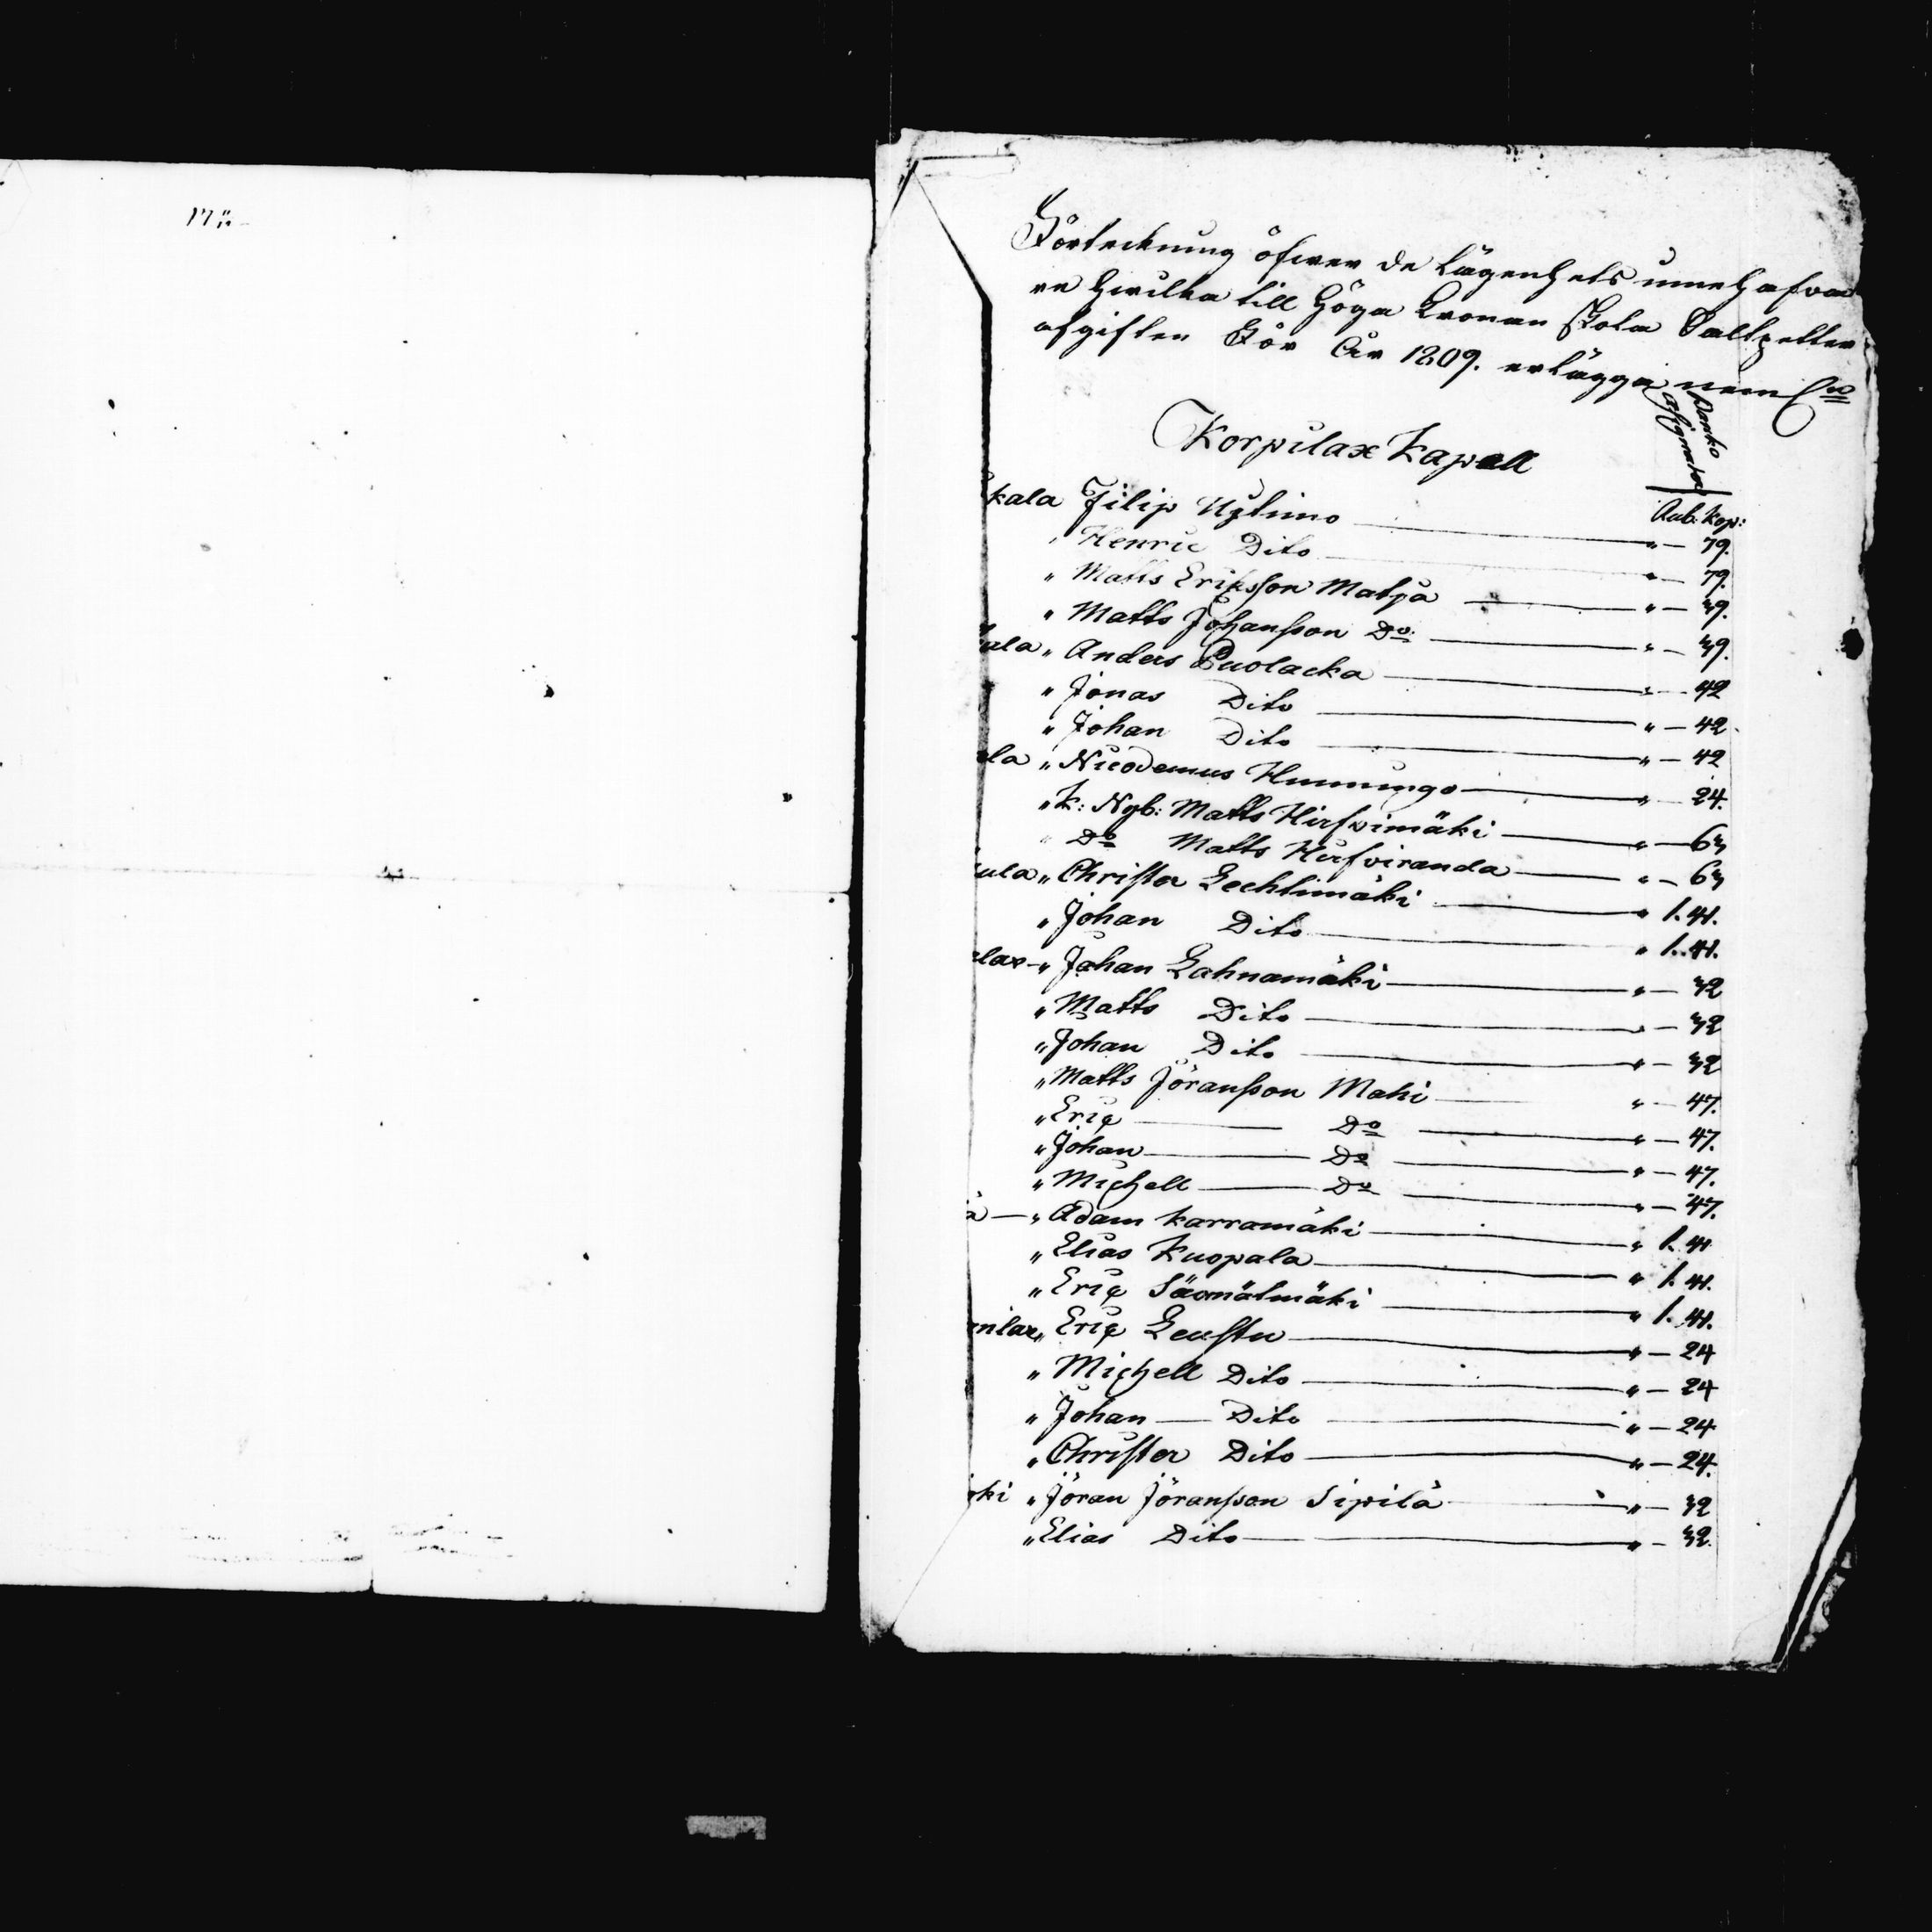 17
Förteckning öfwer de Lägenhets innehafva
re hwilka till Höga Kronan skola Saltpetter
afgiften För År 1809. erlägga nem:
Banko
Assignater
Korpilax Kapell
Rub: Kop:
kala Filip Uhtimo " — 79.
" Henric Dito " — 79.
" Matts Eriksson Matja " — 39.
" Matts Johansson Do " — 39.
ala " Anders Puolacka " — 42
" Jonas Dito " — 42.
" Johan Dito " — 42
la " Nicodemus Hemmingo " — 24.
" K: Nyb: Matts Hirfwimäki " — 63
" Do Matts Hirfviranda " — 63
ula " Christer Lechtimäki " 1. 41.
" Johan Dito " 1. 41.
lax " Johan Lahnamäki " — 32
" Matts Dito " — 32
" Johan Dito " — 32
" Matts Jöransson Mahi " — 47.
" Eric Do " — 47.
" Johan Do " — 47.
" Michell Do " — 47.
ä — " Adam Karramäki " 1. 41
" Elias Kuopala " 1. 41.
" Eric " 1. 41.
milax " Eric Leustu " — 24
" Michell Dito " — 24
" Johan — Dito " — 24
" Christer Dito " — 24.
ki " Jöran Jöransson Sipilä " — 32
" Elias Dito " — 32.